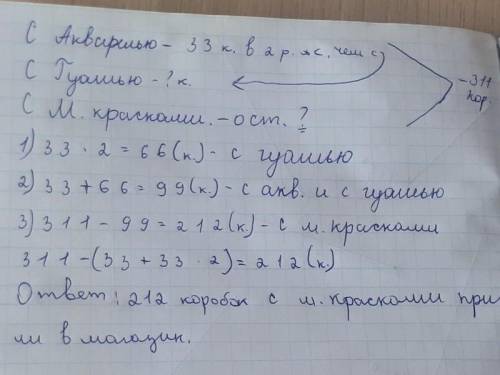 С Акварелью - 33 к. в 2 р. <, чем с
С Гуашью - ? к.
- 311
кор.
С М. красками. - ост. ?
1) 33 · 2 = 66 (к.) - с гуашью
2) 33 + 66 = 99 (к.) - с акв. и с гуашью
3) 311 - 99 = 212 (к.) - с м. красками
311 - (33 + 33 · 2) = 212 (к.)
Ответ: 212 коробок с м. красками при
ли в магазин.